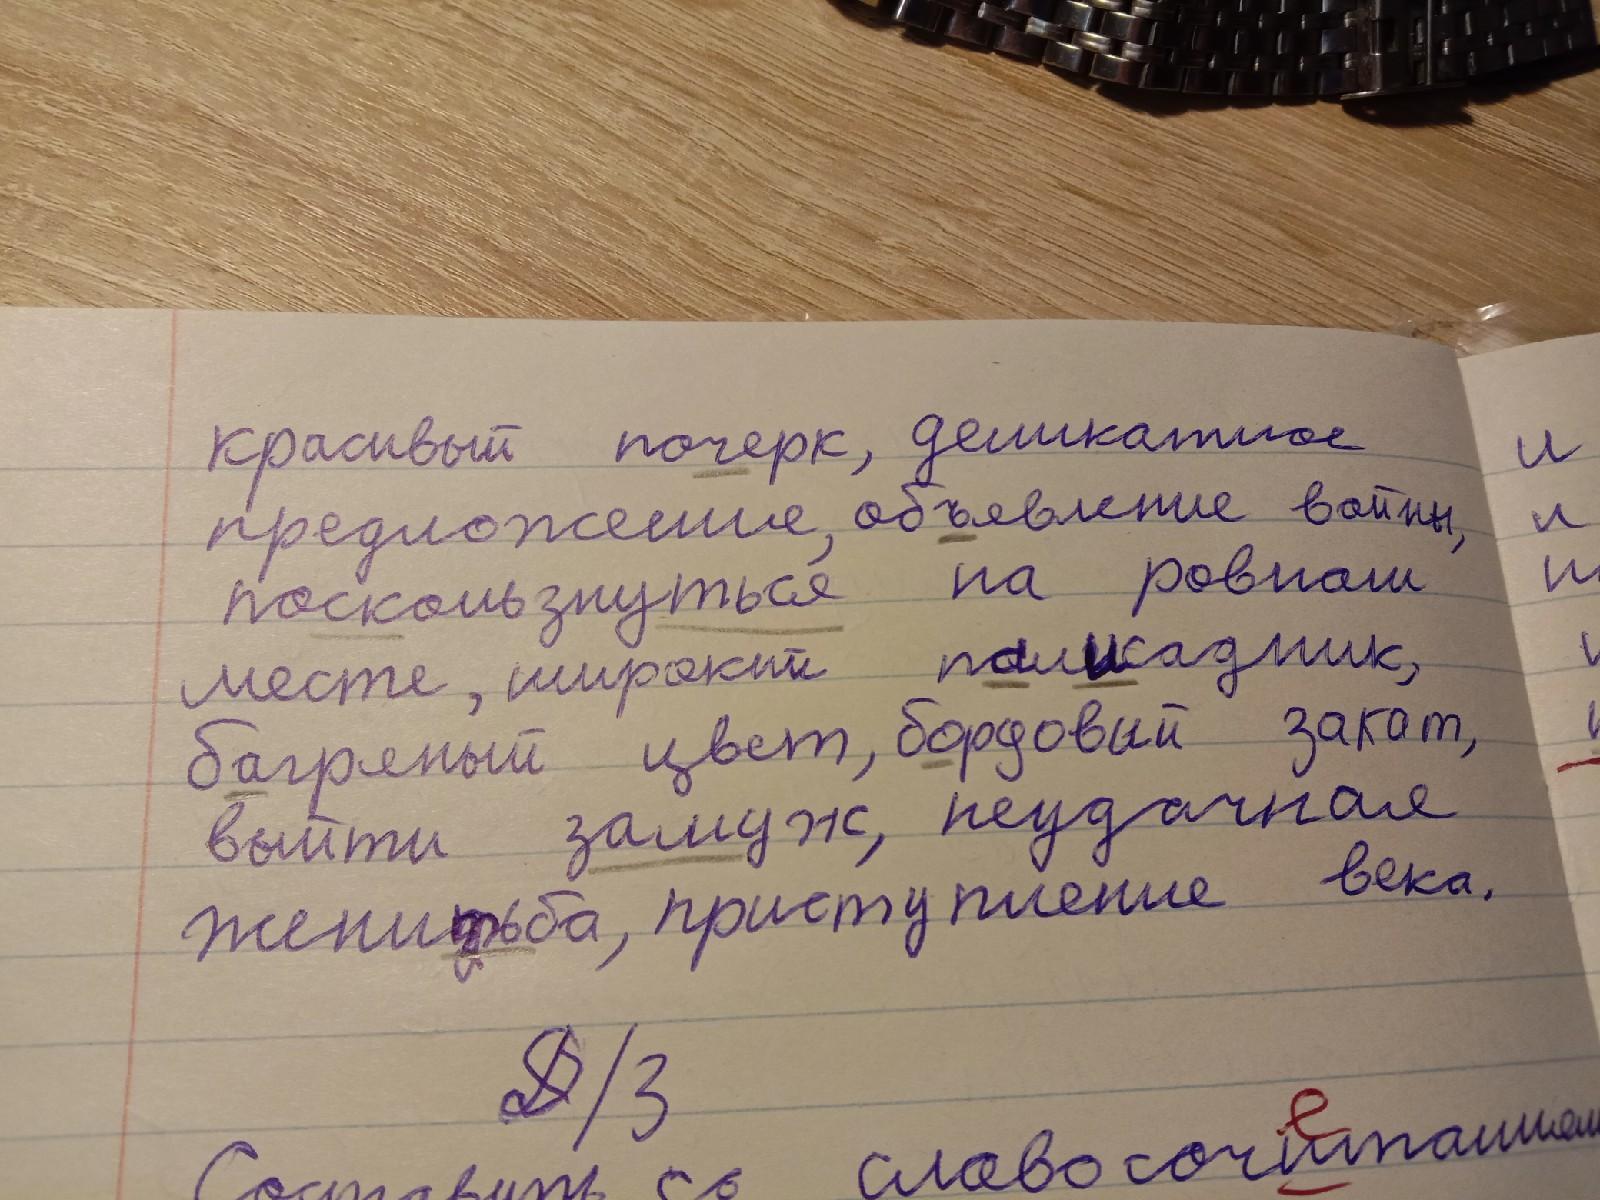 красивый почерк, деликатное
предложение, объявление войны,
поскользнуться на ровном
месте, широкий палисадник,
багряный цвет, бордовый закат,
выйти замуж, неудачная
женитьба, приступление века.
Д/З
Составить со словосочитанием